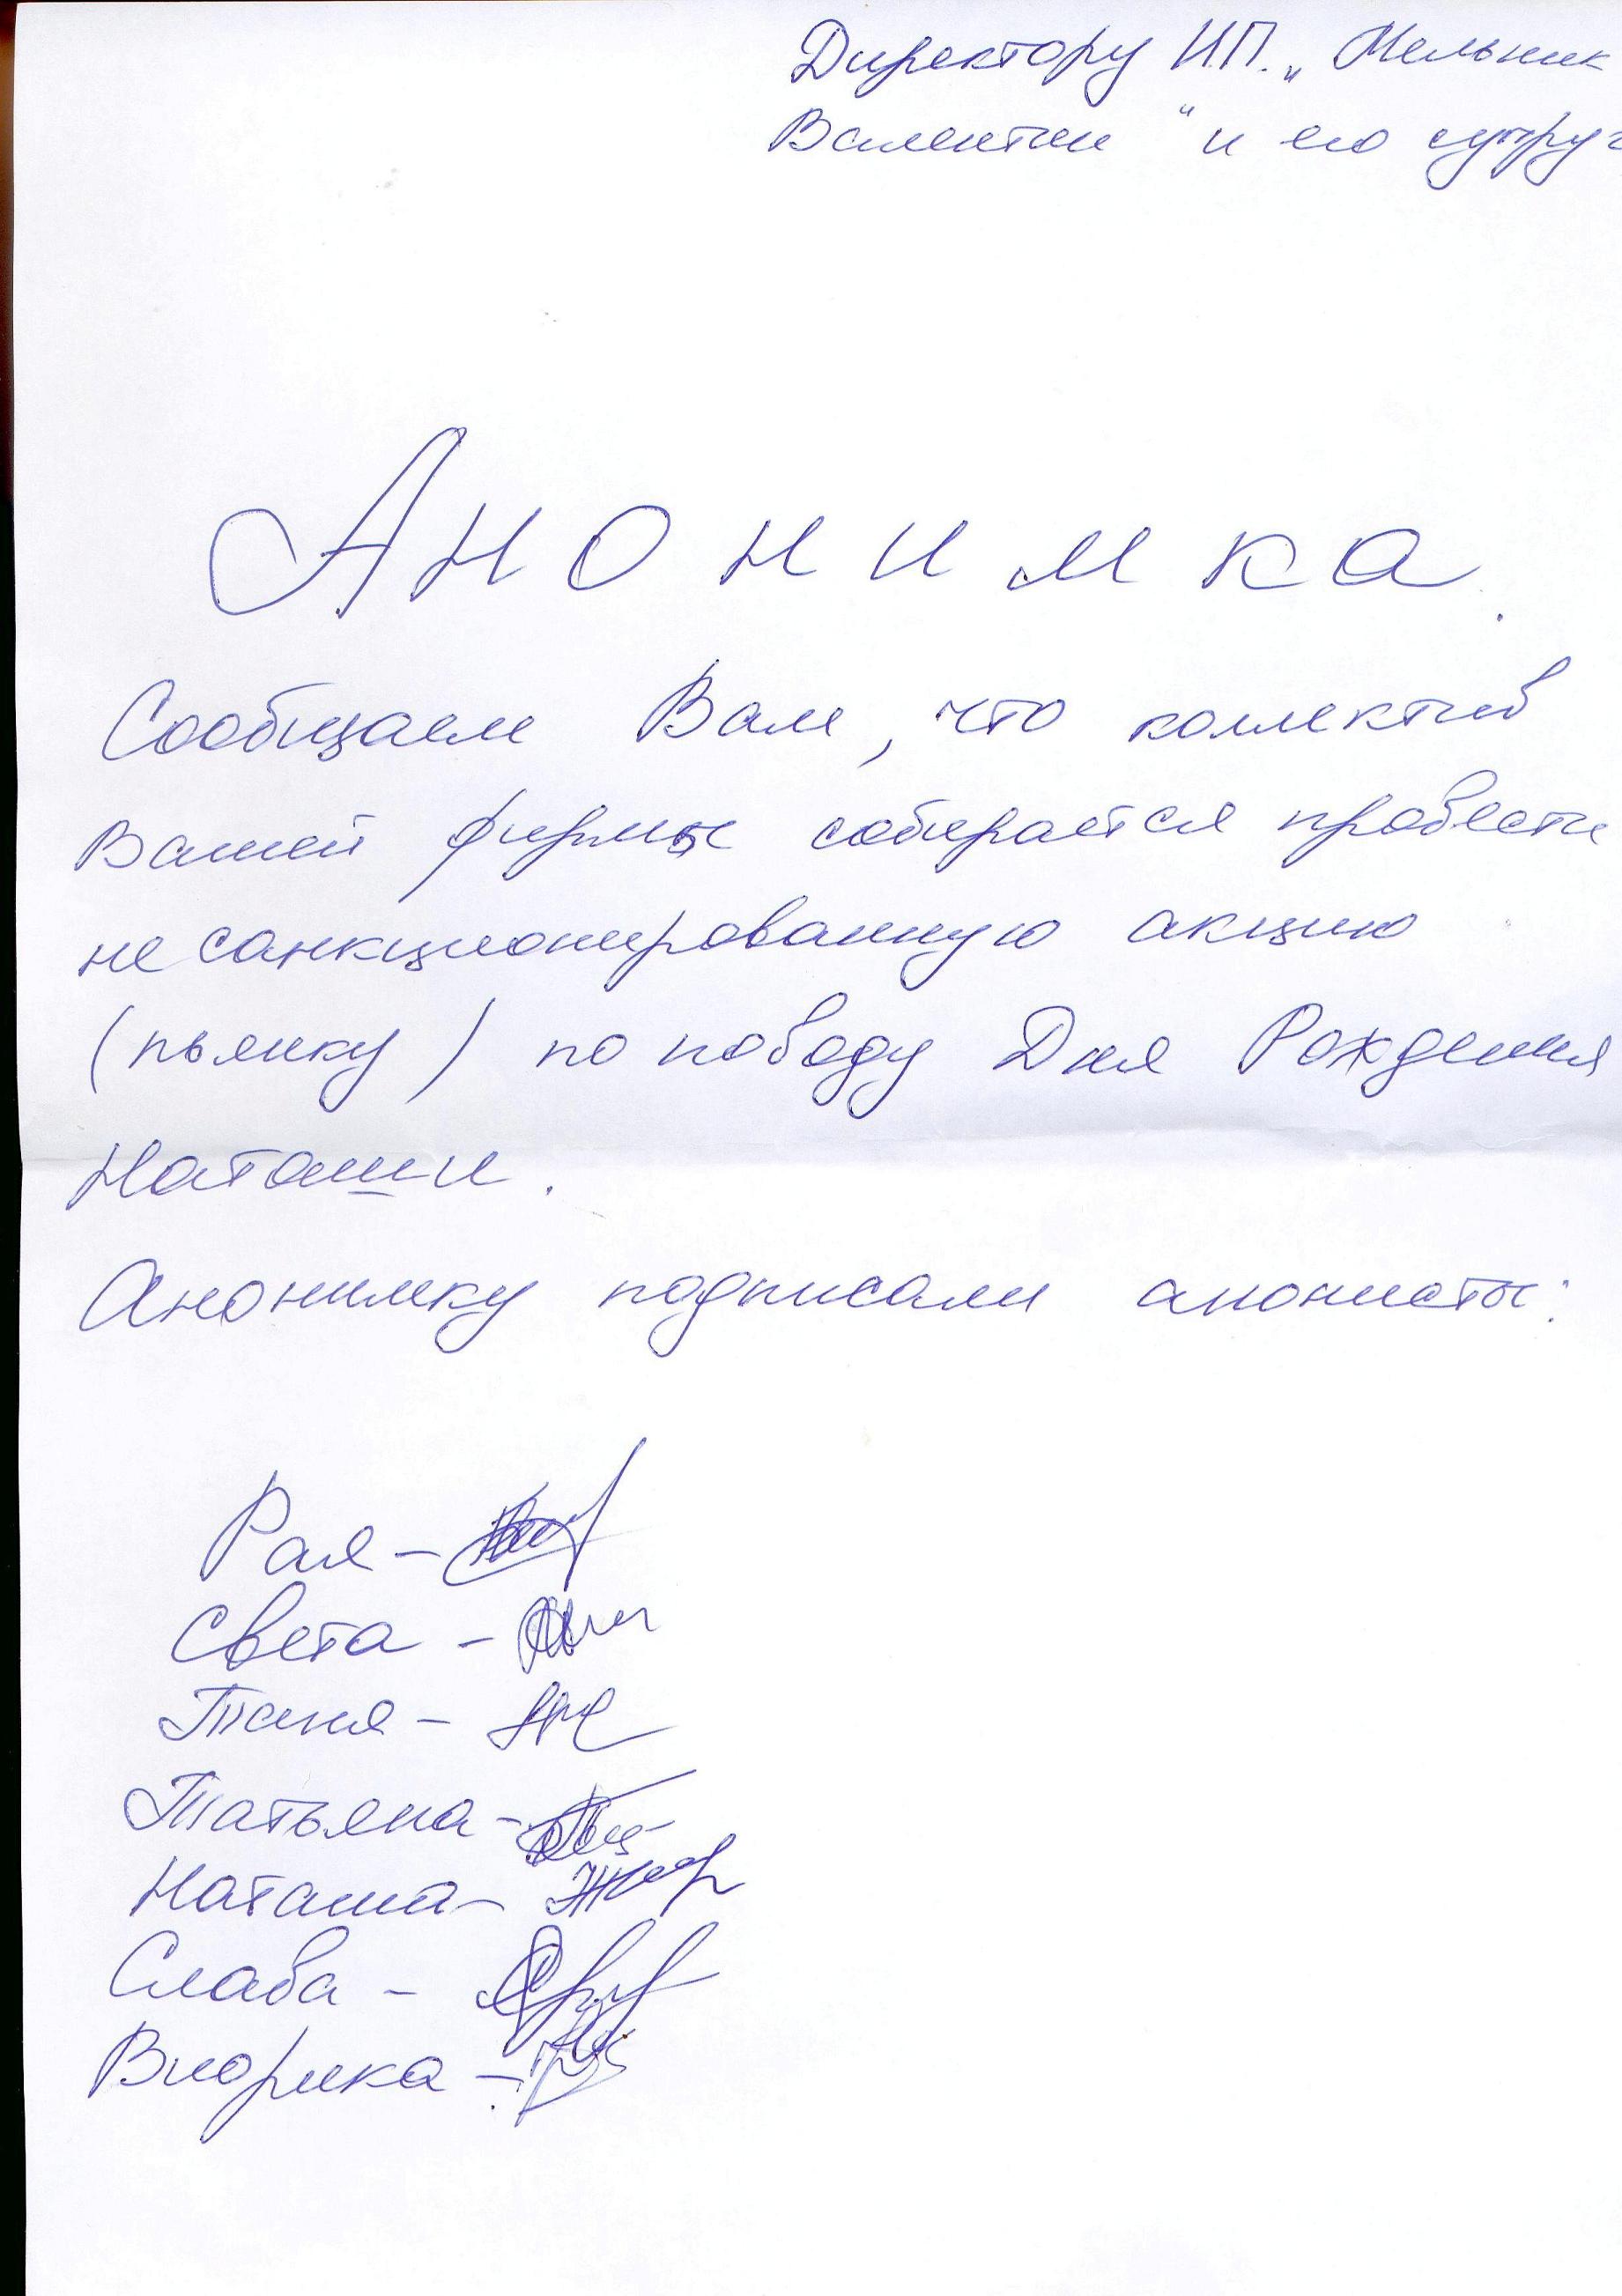 Директору И.П. „Мельник
Валентин" и его супруг
Анонимка.
Сообщаем Вам, что коллектив
Вашей фирмы собирается провести
не санкционированную акцию
(пьянку) по поводу Дня Рождения
Наташи.
Анонимку подписали анонисты:
Рая –
Света –
Таня –
Татьяна –
Наташа –
Слава –
Виорика –